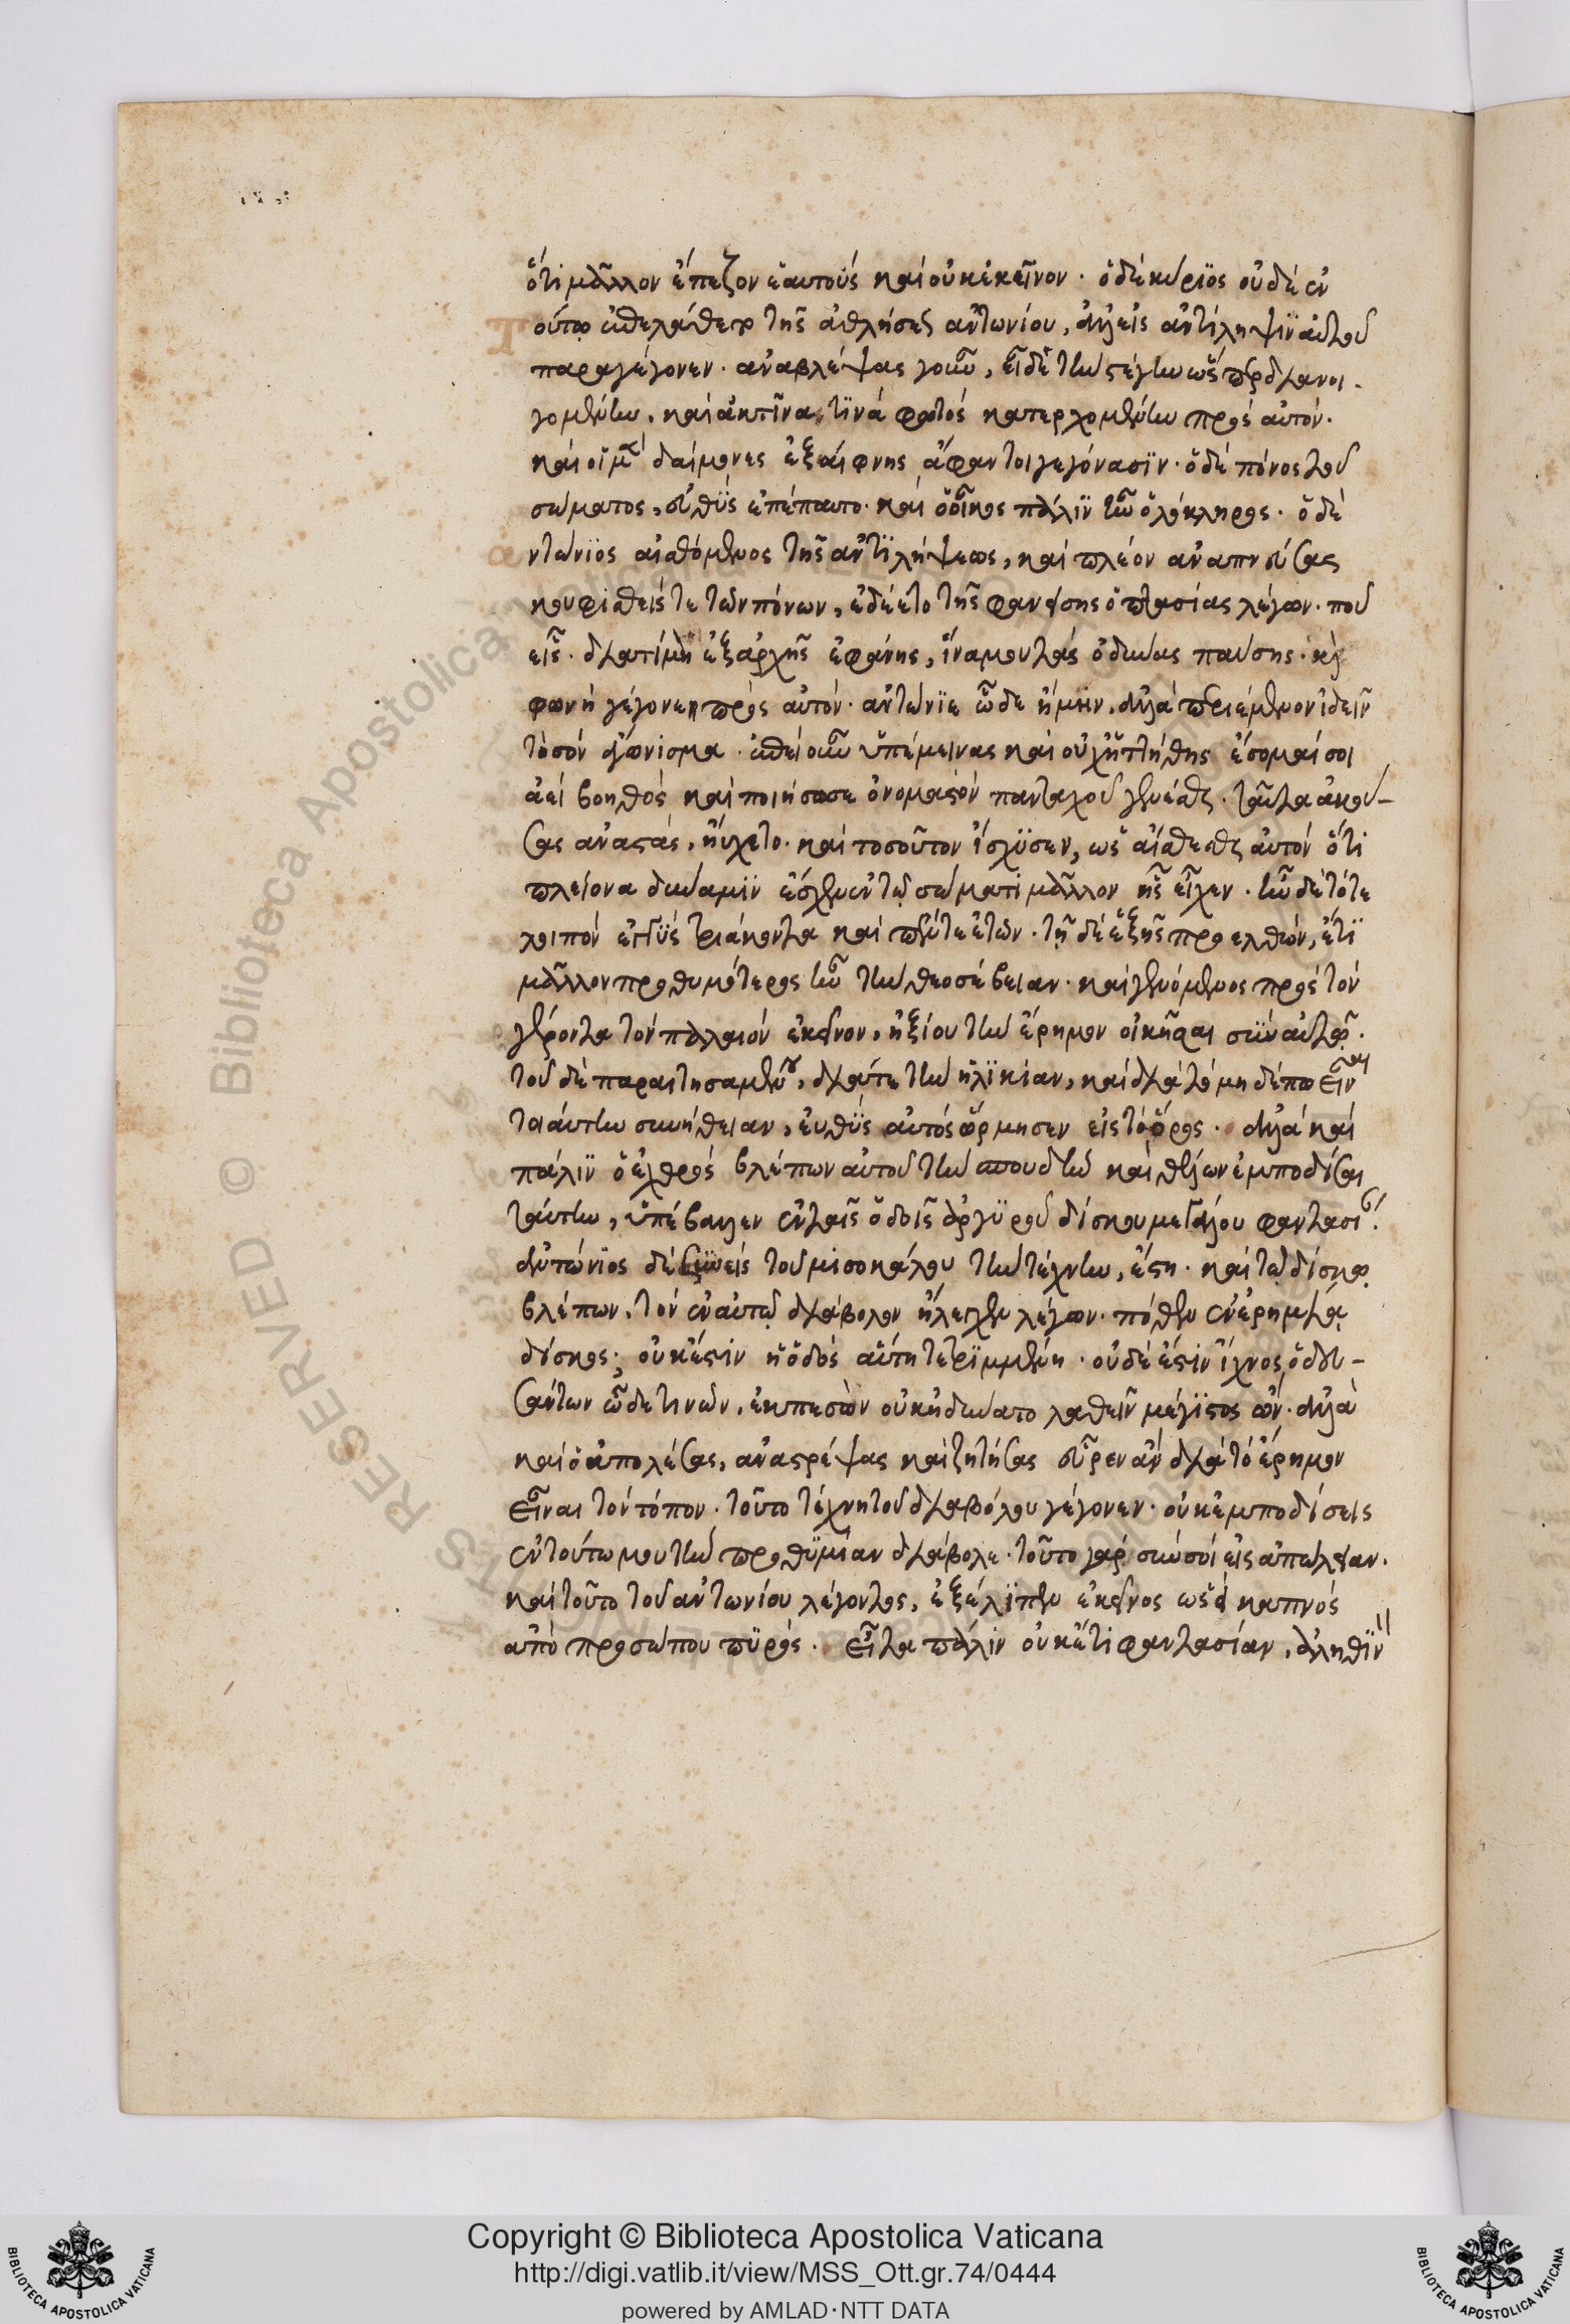 ὅτι μᾶλλον ἔπεζον ἑαυτοὺς καὶ οὐκ ἐκεῖνον · ὁ δὲ κύριος οὐδὲ ἐν
τούτῳ ἐπελάθετο τῆς ἀθλήσεως ἀντωνίου, ἀλλ' εἰς ἀντίληψιν αὐτοῦ
παραγέγονεν · ἀναβλέψας γοῦν, εἶδε τὴν στέγην ὥσπερ διανοι-
γομένην, καὶ ἀκτῖνά τινα φωτὸς κατερχομένην πρὸς αὐτόν ·
καὶ οἱ μὲν δαίμονες ἐξαίφνης ἄφαντοι γεγόνασιν · ὁ δὲ πόνος τοῦ
σώματος, εὐθὺς ἐπέπαυτο · καὶ ὁ οἶκος πάλιν ἦν ὁλόκληρος · ὁ δὲ
ἀντώνιος αἰσθόμενος τῆς ἀντιλήψεως, καὶ πλέον ἀναπνεύσας
κουφισθείς τε τῶν πόνων, ἐδέετο τῆς φανείσης ὀπτασίας λέγων · ποῦ
εἶς · διατί μὴ ἐξ ἀρχῆς ἐφάνης, ἵνα μου τὰς ὀδύνας παύσης · καὶ
φωνὴ γέγονεν πρὸς αὐτόν · ἀντώνιε ὧδε ἤμην, ἀλλὰ περιέμενον ἰδεῖν
τὸ σὸν ἀγώνισμα · ἐπεὶ οὖν ὑπέμεινας καὶ οὐχ ἡττήθης ἔσομαί σοι
ἀεὶ βοηθὸς καὶ ποιήσω σε ὀνομαστὸν πανταχοῦ γενέσθαι · ταῦτα ἀκού-
σας ἀναστάς, ηὔχετο · καὶ τοσοῦτον ἴσχυσεν, ὡς αἰσθέσθαι αὐτὸν ὅτι
πλείονα δύναμιν ἔσχεν ἐν τῷ σώματι μᾶλλον ἧς εἶχεν · ἦν δὲ τότε
λοιπὸν ἐγγὺς τριάκοντα καὶ πέντε ἐτῶν · τῇ δὲ ἑξῆς προελθών, ἔτι
μᾶλλον προθυμότερος ἦν τὴν θεοσέβειαν · καὶ γενόμενος πρὸς τὸν
γέροντα τὸν παλαιὸν ἐκεῖνον, ἠξίου τὴν ἔρημον οἰκῆσαι σὺν αὐτῷ ·
τοῦ δὲ παραιτησαμένου, διά τε τὴν ἡλικίαν, καὶ διὰ τὸ μηδέπω εἶναι
τοιαύτην συνήθειαν, εὐθὺς αὐτὸς ὥρμησεν εἰς τὸ ὄρος · ἀλλὰ καὶ
πάλιν ὁ ἐχθρὸς βλέπων αὐτοῦ τὴν σπουδὴν καὶ θέλων ἐμποδίσαι
ταύτην, ὑπέβαλλεν ἐν ταῖς ὁδοῖς ἀργυροῦ δίσκου μεγάλου φαντασίαν ·
ἀντώνιος δὲ συνεὶς τοῦ μισοκάλου τὴν τέχνην, ἔστη · καὶ τῷ δίσκῳ
βλέπων, τὸν ἐν αὐτῷ διάβολον ἤλεγχεν λέγων · πόθεν ἐν ἐρημίᾳ
δίσκος; οὐκ ἔστιν ἡ ὁδὸς αὕτη τετριμμένη · οὐδὲ ἔστιν ἴχνος ὁδευ-
σάντων ὧδε τινῶν, ἐκπεσὼν οὐκ ἠδύνατο λαθεῖν μέγιστος ὤν · ἀλλὰ
καὶ ὁ ἀπολέσας, ἀναστρέψας καὶ ζητήσας εὗρεν ἂν διὰ τὸ ἔρημον
εἶναι τὸν τόπον · τοῦτο τέχνη τοῦ διαβόλου γέγονεν · οὐκ ἐμποδίσεις
ἐν τούτῳ μου τὴν προθυμίαν διάβολε · τοῦτο γὰρ σὺν σοὶ εἰς ἀπώλειαν ·
καὶ τοῦτο τοῦ ἀντωνίου λέγοντος, ἐξέλιπεν ἐκεῖνος ὡσεὶ καπνὸς
ἀπὸ προσώπου πυρός · εἶτα πάλιν οὐκέτι φαντασίαν, ἀληθιν
Copyright © Biblioteca Apostolica Vaticana
http://digi.vatlib.it/view/MSS_Ott.gr.74/0444
powered by AMLAD·NTT DATA